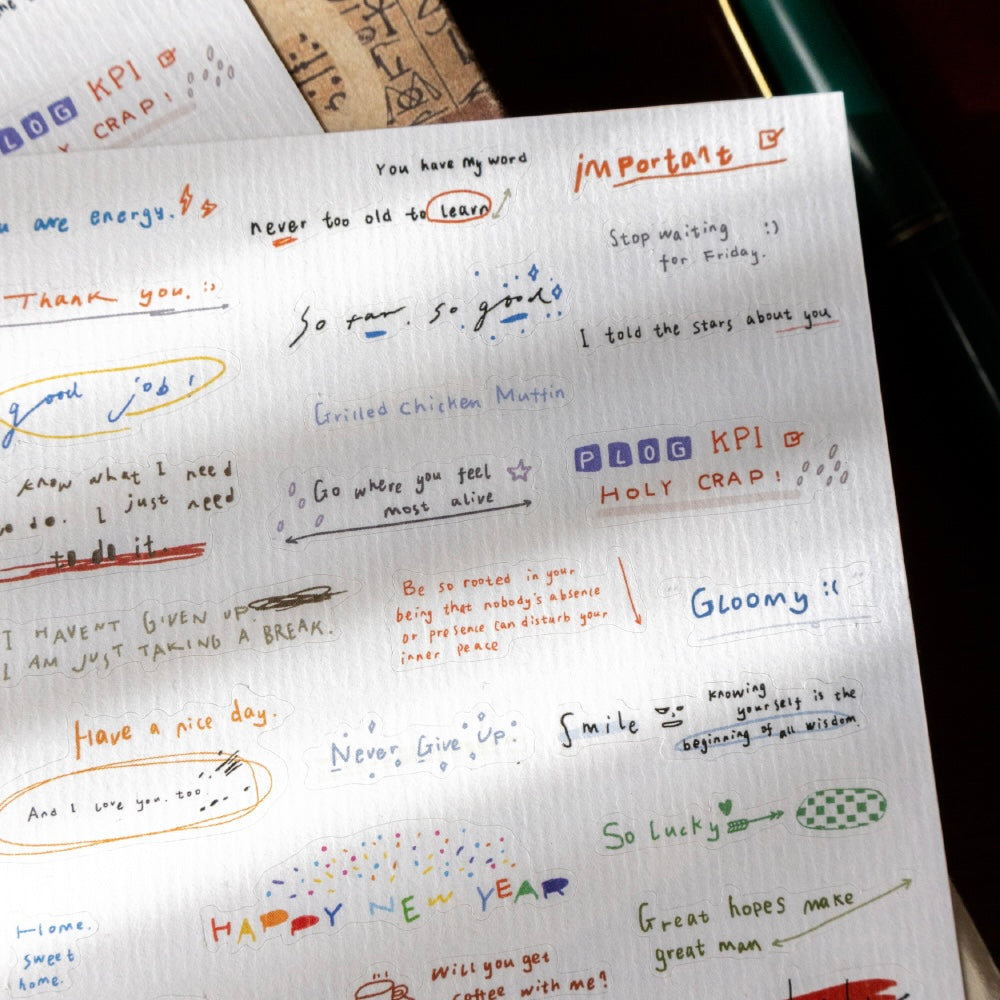 KPI
CRAP!
You have My word
important
are energy.
never too old to learn
Stop waiting :)
for Friday.
Thank you. :)
So far. So good
I told the stars about you
good job!
Grilled Chicken Muttin
know what I need
to do. I just need
to do it.
Go where you feel
most alive
PLOG KPI
HOLY CRAP!
I HAVENT GIVEN UP
I AM JUST TAKING A BREAK.
Be so rooted in your
being that nobody's absence
or presence can disturb your
inner peace
GLOOMY :(
Have a nice day.
And I love you. too.
Never Give Up.
Smile
knowing
yourself is the
beginning of all wisdom.
So lucky
HAPPY NEW YEAR
Great hopes make
great man
Home.
sweet
home.
Will you get
coffee with me?